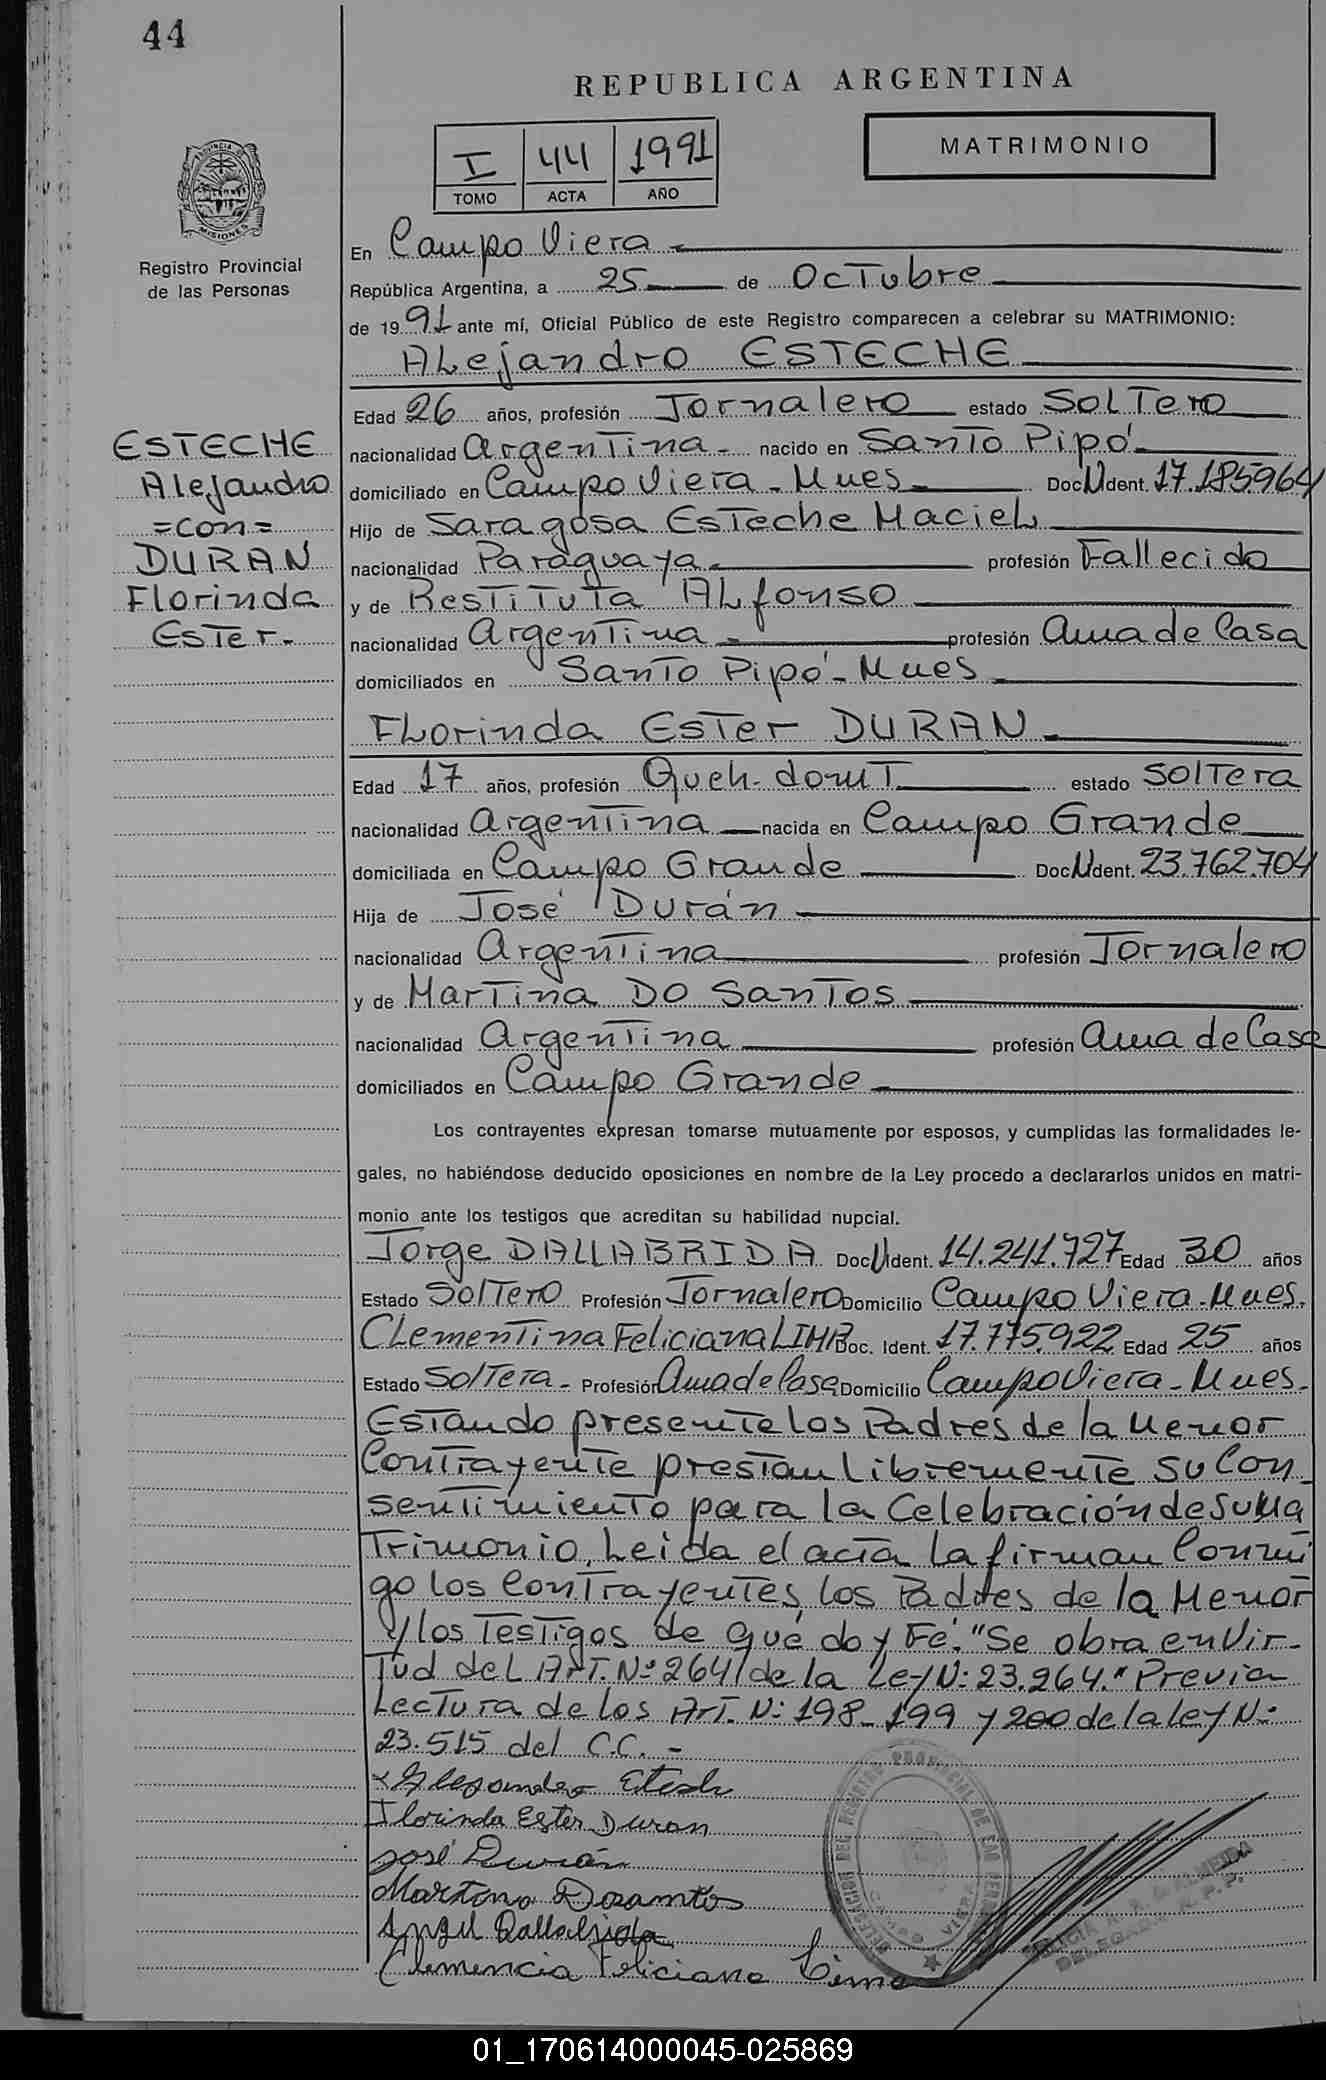 44
REPUBLICA ARGENTINA
I 44 1991
TOMO ACTA AÑO
MATRIMONIO
PROVINCIA DE
MISIONES
Registro Provincial
de las Personas
En Campo Viera
República Argentina, a 25 de Octubre
de 1991 ante mí, Oficial Público de este Registro comparecen a celebrar su MATRIMONIO:
Alejandro ESTECHE
Edad 26 años, profesión Jornalero estado Soltero
nacionalidad Argentina nacido en Santo Pipó
domiciliado en Campo Viera - Mnes Doc N Ident. 17.185964
Hijo de Saragosa Esteche Maciel
nacionalidad Paraguaya profesión Fallecido
y de Restituta Alfonso
nacionalidad Argentina profesión Ama de Casa
domiciliados en Santo Pipó - Mnes
ESTECHE
Alejandro
=con=
DURAN
Florinda
Ester.-
Florinda Ester DURAN
Edad 17 años, profesión Queh. domt estado Soltera
nacionalidad Argentina nacida en Campo Grande
domiciliada en Campo Grande Doc N Ident. 23.762.704
Hija de José Durán
nacionalidad Argentina profesión Jornalero
y de Martina DO Santos
nacionalidad Argentina profesión Ama de Casa
domiciliados en Campo Grande
Los contrayentes expresan tomarse mutuamente por esposos, y cumplidas las formalidades le-
gales, no habiéndose deducido oposiciones en nombre de la Ley procedo a declararlos unidos en matri-
monio ante los testigos que acreditan su habilidad nupcial.
Jorge DALLABRIDA Doc N Ident. 14.241.727 Edad 30 años
Estado Soltero Profesión Jornalero Domicilio Campo Viera - Mnes.
Clementina Feliciana LIMA Doc. Ident. 17.775.922 Edad 25 años
Estado Soltera - Profesión Ama de Casa Domicilio Campo Viera - Mnes.
Estando presente los Padres de la Menor
Contrayente prestan Libremente su Con
sentimiento para la Celebración de su Ma
trimonio, Leida el acta la firman Conmi
go los Contrayentes, los Padres de la Menor
y los Testigos de que doy Fe. "Se obra en Vir-
tud del Art. Nº 264 de la Ley N: 23.264." Previa
Lectura de los Art. N: 198 - 199 y 200 de la ley N:
23.515 del C.C. -
Alejandro Estech
Florinda Ester Duran
José Durán
Martina Dosantos
Dallabrida
Clemencia Feliciana Lima
DELEGACION DEL REGISTRO PROVINCIAL DE LAS PERSONAS
CAMPO VIERA
ALMEIDA
DELEGADA R. P. P.
01_170614000045-025869